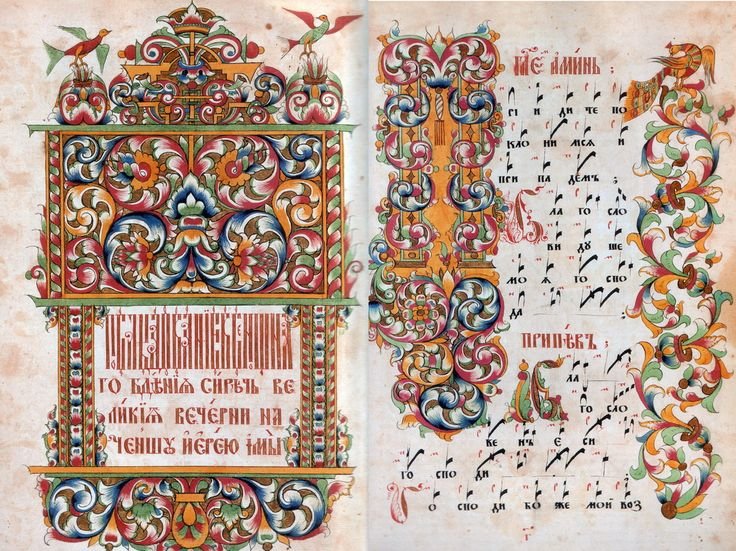 го бдѣнія сирѣчь ве
ликія вечерни на
ченшу іерею і мы
ме аминь :
рі и ди те по
кло ни мся и
при па демъ :
Б ла го сло
ви ду ше
мо я го спо
да
припѣвъ :
Б ла
го сло
ве нъ е си
го спо ди
Г о спо ди бо же мой воз